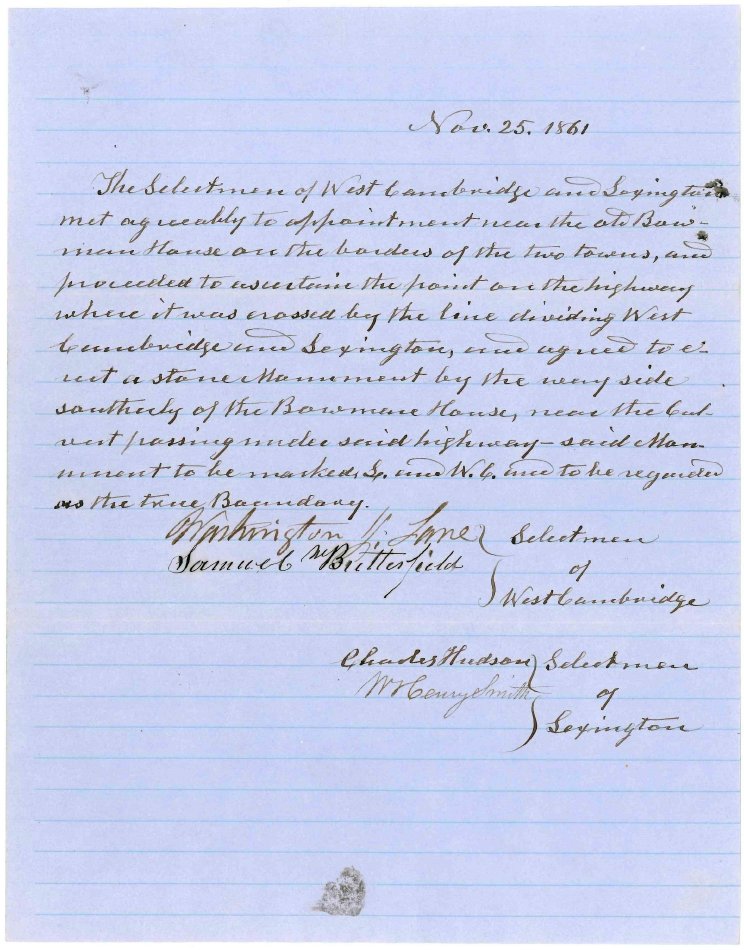 Nov. 25. 1861
The Selectmen of West Cambridge and Lexington
met agreeably to appointment near the old Bow-
man House on the borders of the two towns, and
proceeded to ascertain the point on the highway
where it was crossed by the line dividing West
Cambridge and Lexington, and agreed to e-
rect a stone Monument by the way side
southerly of the Bowman House, near the Cul-
vert passing under said highway - said Mon-
ument to be marked, L. and W. C. and to be regarded
as the true Boundary.
Washington J. Lane } Selectmen
Samuel Butterfield of
West Cambridge
Charles Hudson } Selectmen
W Henry Smith of
Lexington